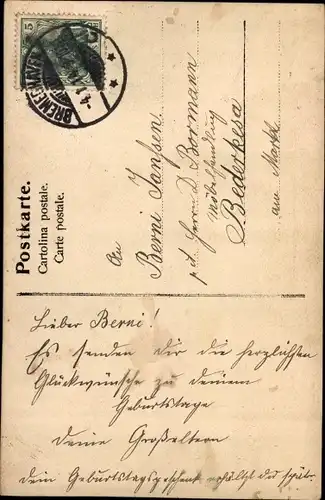 5
BREMERHAVEN
Postkarte.
Cartolina postale.
Carte postale.
An
Berni Janssen
p. d. Herrn D. Bormann
Möbelhandlung
Bederkesa
am Markt
Lieber Berni!
Es senden dir die herzlichsten
Glückwünsche zu deinem
Geburtstage
deine Großeltern
dein Geburtstagsgeschenk erhältst du später.